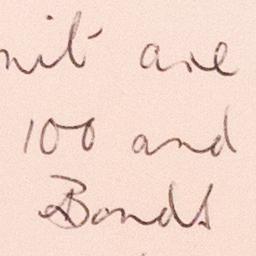 nit are
100 and
Bonds